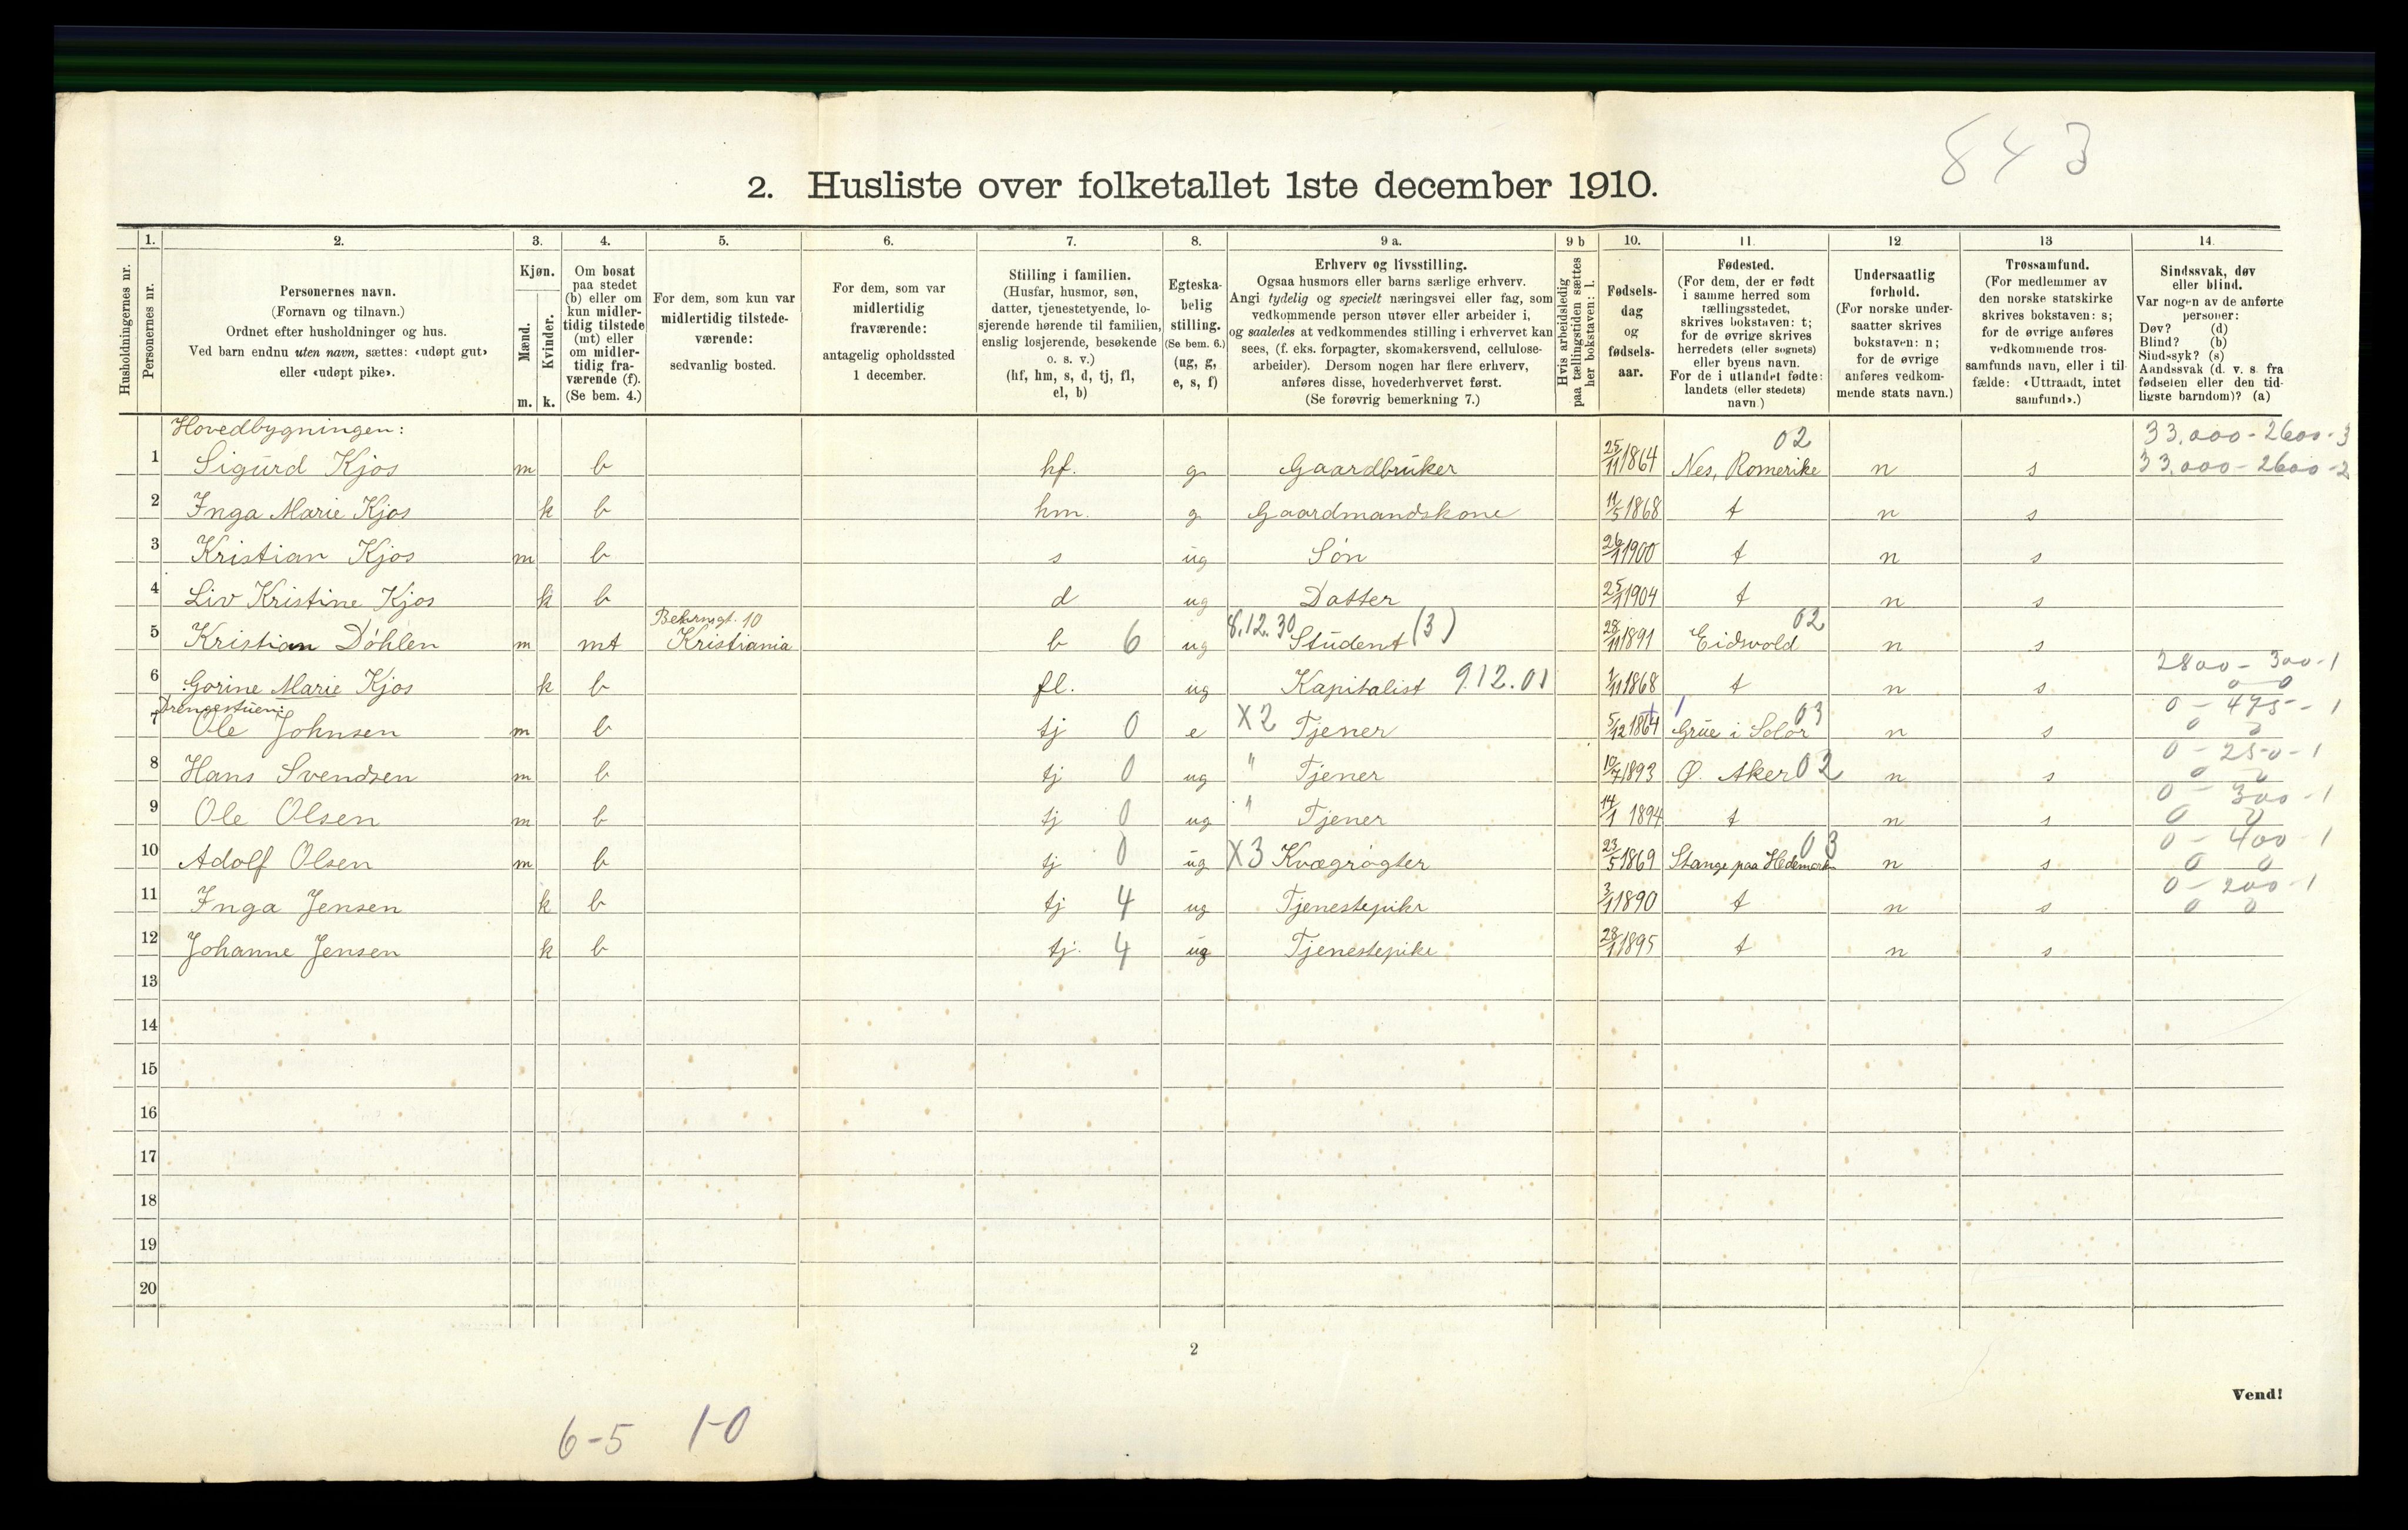 843
2. Husliste over folketallet 1ste december 1910.
Husholdningernes nr.
1. Personernes nr.
2. Personernes navn.
(Fornavn og tilnavn.)
Ordnet efter husholdninger og hus.
Ved barn endnu uten navn, sættes: «udøpt gut»
eller «udøpt pike».
3. Kjøn.
Mænd. m.
Kvinder. k.
4. Om bosat
paa stedet
(b) eller om
kun midler-
tidig tilstede
(mt) eller
om midler-
tidig fra-
værende (f).
(Se bem. 4.)
5. For dem, som kun var
midlertidig tilstede-
værende:
sedvanlig bosted.
6. For dem, som var
midlertidig
fraværende:
antagelig opholdssted
1 december.
7. Stilling i familien.
(Husfar, husmor, søn,
datter, tjenestetyende, lo-
sjerende hørende til familien,
enslig losjerende, besøkende
o. s. v.)
(hf, hm, s, d, tj, fl,
el, b)
8. Egteska-
belig
stilling.
(Se bem. 6.)
(ug, g,
e, s, f)
9 a. Erhverv og livsstilling.
Ogsaa husmors eller barns særlige erhverv.
Angi tydelig og specielt næringsvei eller fag, som
vedkommende person utøver eller arbeider i,
og saaledes at vedkommendes stilling i erhvervet kan
sees, (f. eks. forpagter, skomakersvend, cellulose-
arbeider). Dersom nogen har flere erhverv,
anføres disse, hovederhvervet først.
(Se forøvrig bemerkning 7.)
9 b Hvis arbeidsledig
paa tællingstiden sættes
her bokstaven: l.
10. Fødsels-
dag
og
fødsels-
aar.
11. Fødested.
(For dem, der er født
i samme herred som
tællingsstedet,
skrives bokstaven: t;
for de øvrige skrives
herredets (eller sognets)
eller byens navn.
For de i utlandet fødte:
landets (eller stedets)
navn.)
12. Undersaatlig
forhold.
(For norske under-
saatter skrives
bokstaven: n;
for de øvrige
anføres vedkom-
mende stats navn.)
13 Trossamfund.
(For medlemmer av
den norske statskirke
skrives bokstaven: s;
for de øvrige anføres
vedkommende tros-
samfunds navn, eller i til-
fælde: «Uttraadt, intet
samfund».)
14. Sindssvak, døv
eller blind.
Var nogen av de anførte
personer:
Døv? (d)
Blind? (b)
Sindssyk? (s)
Aandssvak (d. v. s. fra
fødselen eller den tid-
ligste barndom)? (a)
Hovedbygningen: 02 33,000 - 2600 - 3
1 Sigurd Kjos m b hf. g Gaardbruker 25/11 1864 Nes, Romerike n s 33,000 - 2600 - 2
2 Inga Marie Kjos k b hm. g Gaardmandskone 11/5 1868 t n s
3 Kristian Kjos m b s ug Søn 26/1 1900 t n s
4 Liv Kristine Kjos k b d ug Datter 25/1 1904 t n s
10 8.12.30 02
5 Kristian Döhlen m mt Kristiania b 6 ug Student (3) 28/11 1891 Eidsvold n s
2800 - 300 - 1
6 Gorine Marie Kjos k b fl. ug Kapitalist 9.12.01 1/11 1868 t n s 0 0
Drengestuen: 03 0 - 475 - 1
7 Ole Johnsen m b tj 0 e X2 Tjener 5/12 1864 Grue i Solør n s 0 0
0 - 250 - 1
8 Hans Svendsen m b tj 0 ug " Tjener 10/7 1893 Ø. Aker 02 n s 0 0
0 - 300 - 1
9 Ole Olsen m b tj 0 ug " Tjener 14/1 1894 t n s 0 0
03 0 - 400 - 1
10 Adolf Olsen m b tj 0 ug X3 Kvægrøgter 23/5 1869 Stange paa Hedemark n s 0 0
0 - 200 - 1
11 Inga Jensen k b tj 4 ug Tjenestepike 3/1 1890 t n s 0 0
12 Johanne Jensen k b tj. 4 ug Tjenestepike 28/1 1895 t n s
13
14
15
16
17
18
19
20
2
Vend!
6-5 1-0